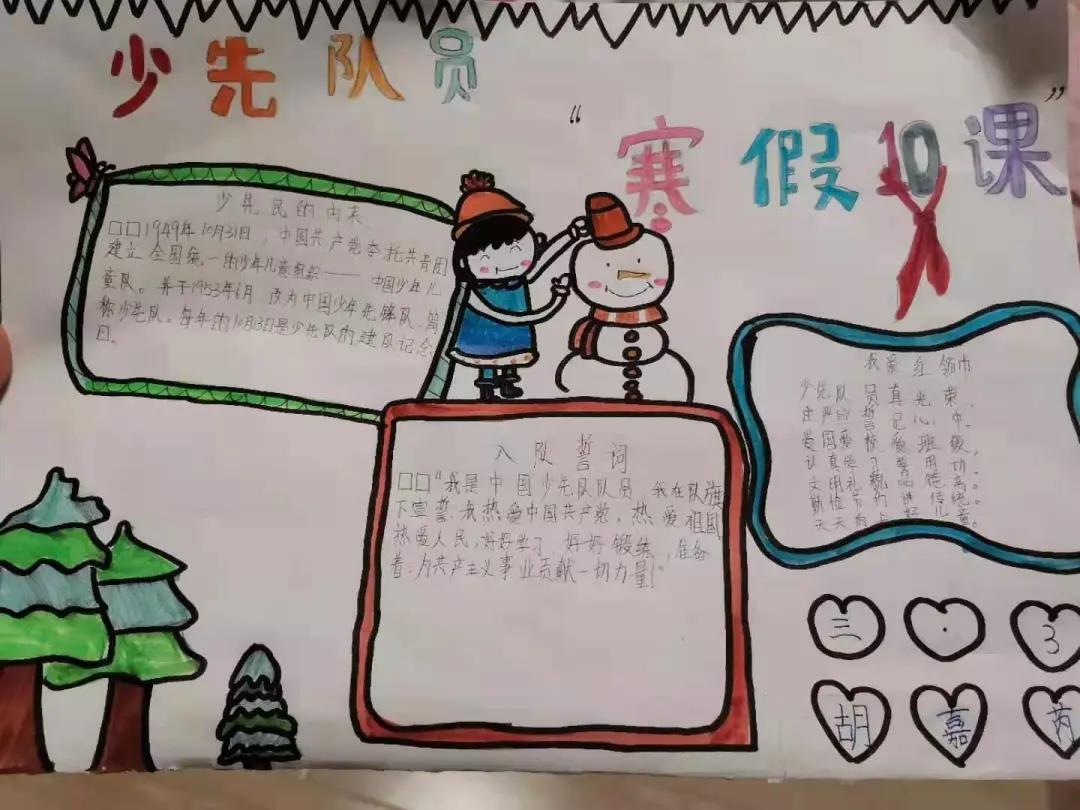 少先队员
“寒假10课”
少先民的由来
□□1949年10月31日，中国共产党李托共青团
建立全国统一的少年儿童组织——中国少年儿
童队。并于1953年6月 改为中国少年先锋队、简
称少先队。每年的10月3日是少先队的建队记念
日。
入队誓词
□□“我是中国少先队队员，我在队旗
下宣誓.我热爱中国共产党。热爱祖国
热爱人民，好好学习.好好锻练，准备
着.为共产主义事业贡献一切力量!”
我爱红领巾
少先队员真光荣，
庄严的誓记心中。
爱国爱校爱班级，
认真学习要用功
文明礼貌品德高。
节约传统
天天儿童。
三·3
胡嘉